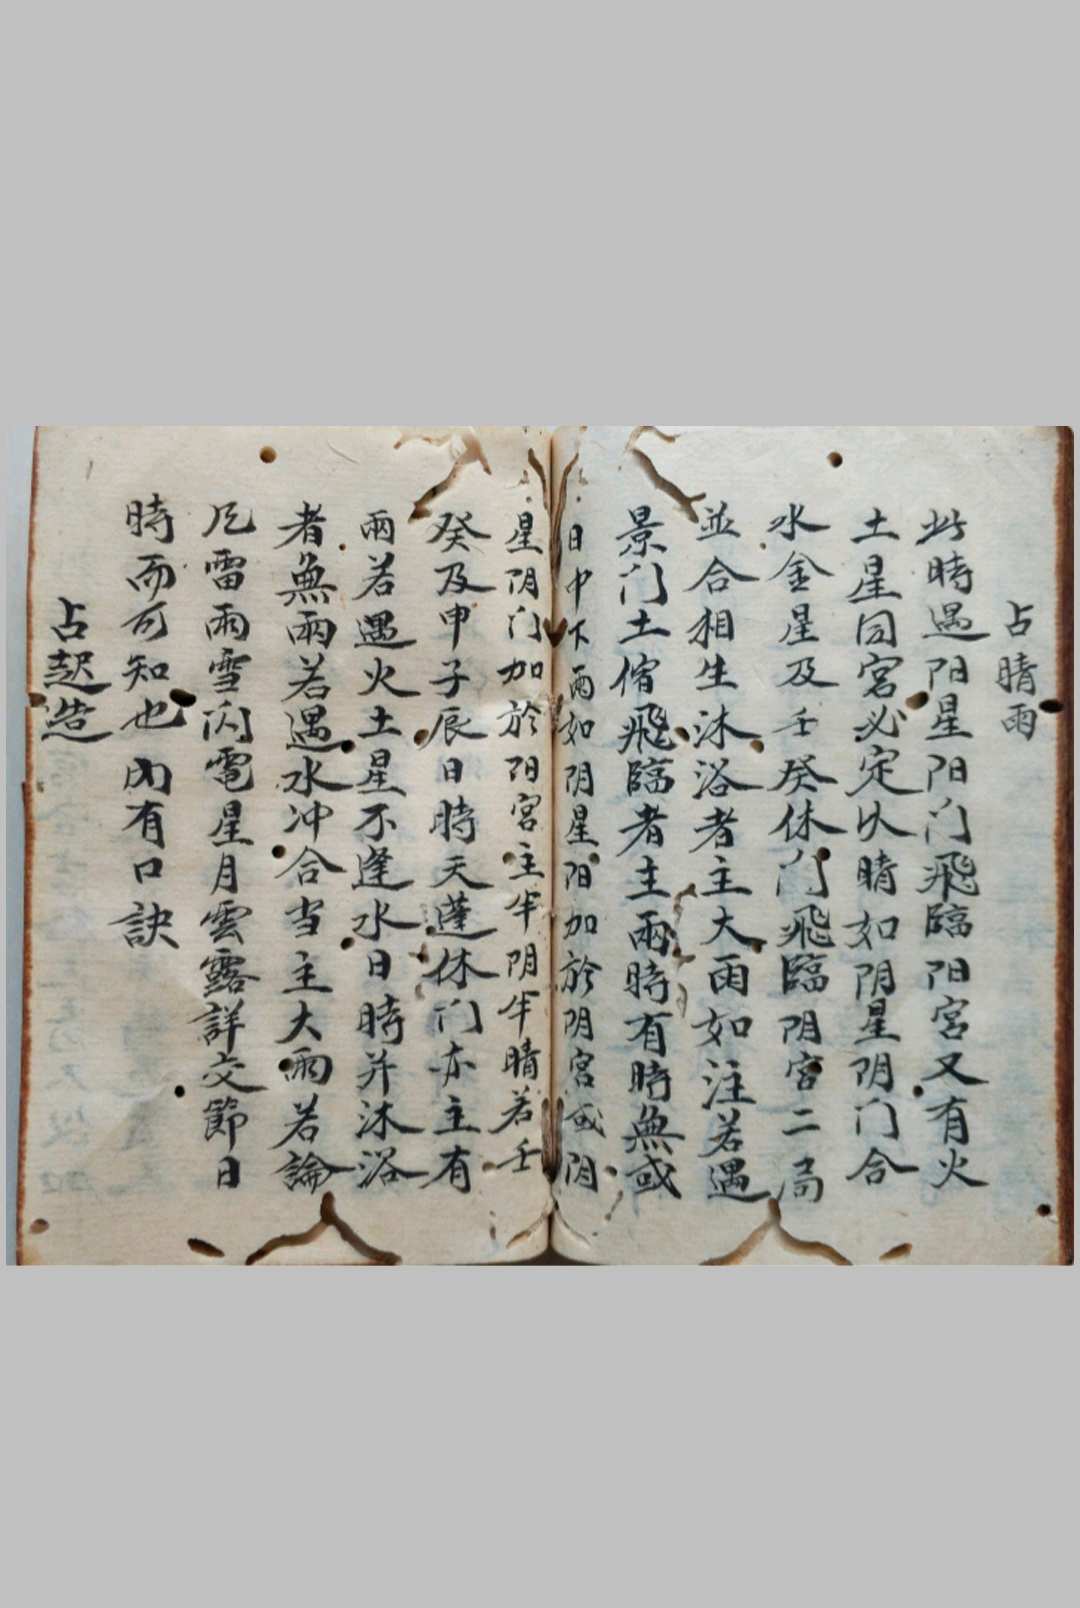 占晴雨
此時遇阳星阳门飛臨阳宮又有火
土星同宮必定久晴如阴星阴门合
水金星及壬癸休门飛臨阴宮二局
並合相生沐浴者主大雨如注若遇
景门土宿飛臨者主雨時有時無或
日中下雨如阴星阳加於阴宮或阴
星阴门加於阳宮主半阴半晴若壬
癸及申子辰日時天蓬休门亦主有
雨若遇火土星不逢水日時并沐浴
者無雨若遇水冲合当主大雨若論
凡雷雨雪闪電星月雲露詳交節日
時而可知也內有口訣
占起造